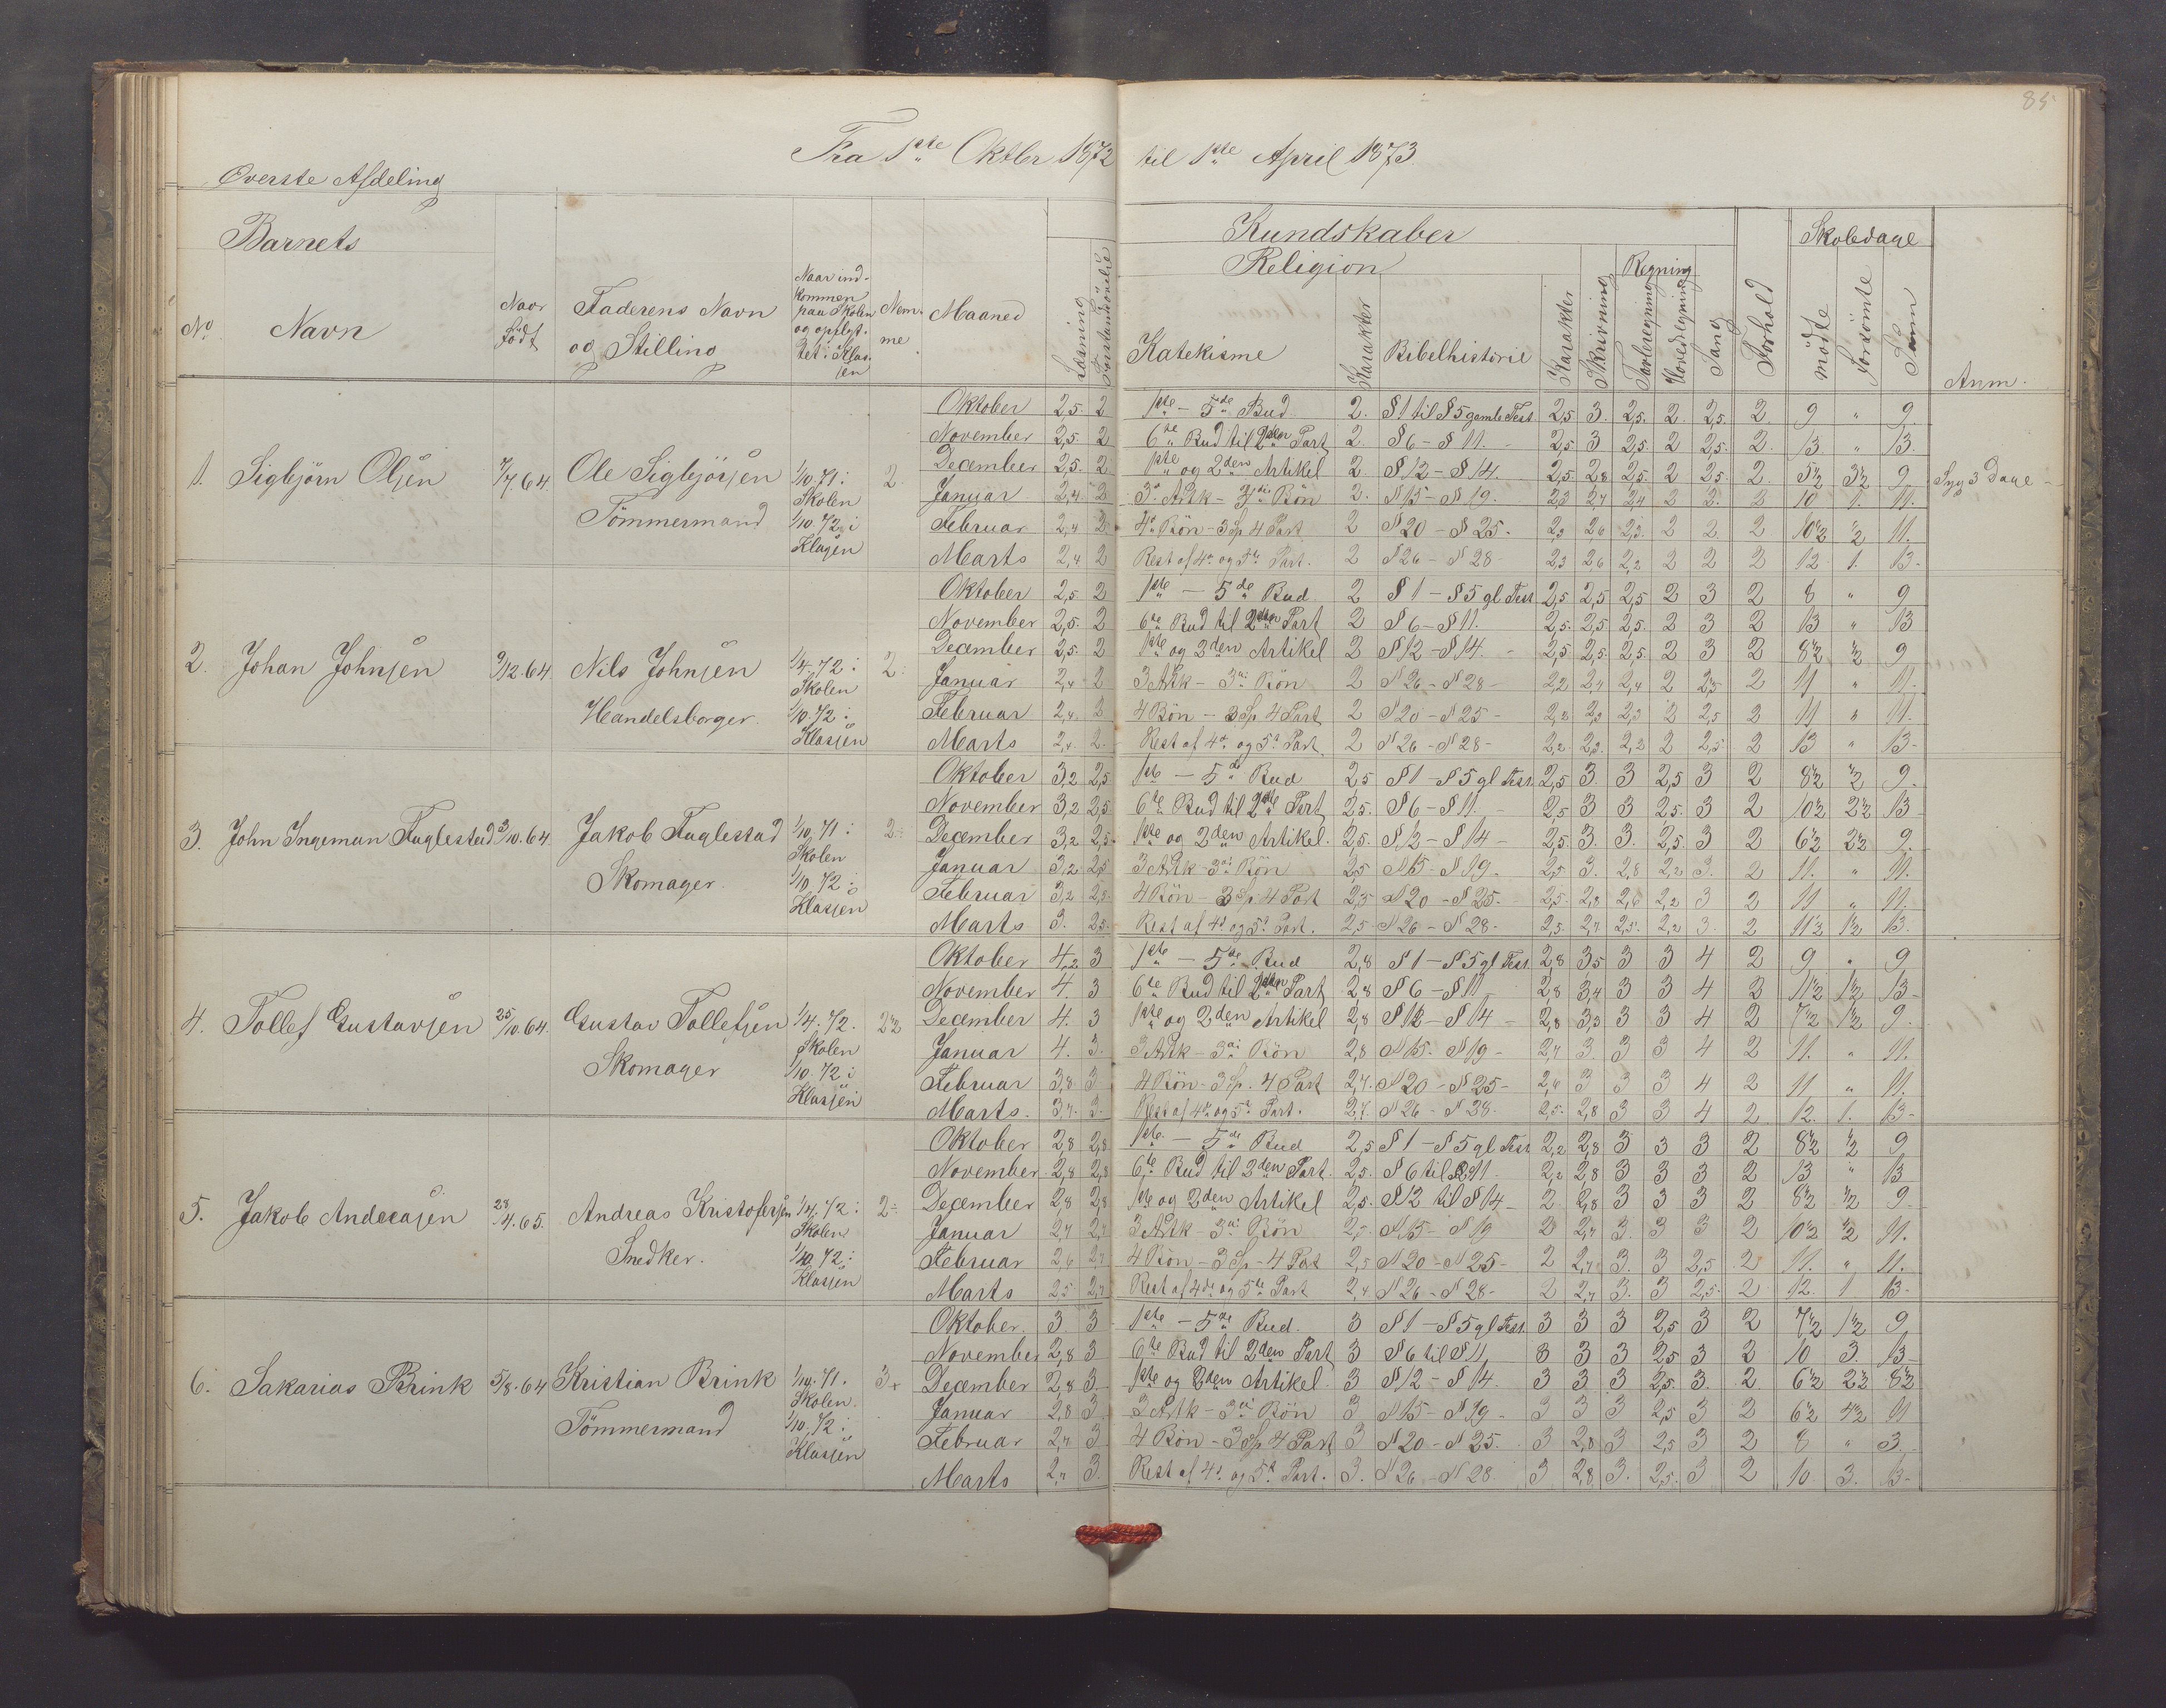 85
Fra 1ste Oktbr 1872 til 1ste April 1873.
Överste Afdeling
Barnets
Kundskaber
Skoledage
Religion
Regning
No
Navn
Naar födt
Faderens Navn og Stilling
Naar indkommen paa Skolen og opflyttet i Klasjen
Nemme
Maaned
Læsning
Forstandsövelse
Katekisme
Karakter
Bibelhistorie
Karakter
Skrivning
Tavleregning
Hovedregning
Sang
Forhold
mödte
forsömte
Sum
Anm.
1. Sigbjörn Olsen 7/7.64. Ole Sigbjörsen Tömmermand 1/10.71 i Skolen 1/10.72 i Klasjen 2
Oktober 2,5. 2 1ste – 5de Bud. 2. § 1 til § 5 gamle Test. 2,5 3. 2,5. 2. 2,5. 2. 9 " 9.
November 2,5. 2 6te Bud til 2den Part 2. § 6 – § 11. 2,5 3 2,5. 2 2,5. 2. 13. " 13.
December 2,5. 2 1ste og 2den Artikel 2. § 12 – § 14. 2,5 2,8 2,5. 2 2,5. 2. 5½ 3½ 9. Syg 3 Dage
Januar 2,4 2 3d Artk – 3die Bön 2. § 15 – § 19. 2,3 2,7 2,4 2 2. 2 10 1. 11.
Februar 2,4 2. 4de Bön – 3 Sp 4 Part 2 § 20 – § 25. 2,3 2,6 2,3. 2 2. 2 10½ ½ 11.
Marts 2,4 2 Rest af 4de og 5te Part. 2 § 26 – § 28 2,3 2,6 2,2 2 2 2 12 1. 13.
2. Johan Johnsen 9/12.64 Nils Johnsen Handelsborger. 1/4.72 i Skolen 1/10.72 i Klasjen 2
Oktober 2,5 2 1ste – 5de Bud. 2 § 1 – § 5 gl Test 2,5 2,5 2,5 2 3 2 8 " 9
November 2,5. 2 6te Bud til 2den Part 2 § 6 – § 11. 2,5. 2,5 2,5. 2 3 2 13 " 13
December 2,5. 2 1ste og 2den Artikel 2 § 12 – § 14. 2,5 2,5. 2,5. 2 3 2 8½ ½ 9
Januar 2,4 2 3 Artk – 3di Bön 2 § 26 – § 28 2,2 2,4 2,4 2 2,5 2 11 " 11.
Februar 2,4. 2 4 Bön – 3 Sp 4 Part 2 § 20 – § 25 2,2 2,3 2,3 2 2,5 2 11 " 11.
Marts 2,4. 2. Rest af 4de og 5te Part 2 § 26 – § 28 2,2 2,3. 2,2 2 2,5 2 13 " 13
3. John Ingeman Fuglestad 3/10.64. Jakob Fuglestad Skomager. 1/10.71 i Skolen 1/10.72 i Klasjen 2
Oktober 3,2 2,5 1ste – 5de Bud 2,5 § 1 – § 5 gl Test. 2,5 3. 3 2,5 3 2 8½ ½ 9.
November 3,2 2,5 6te Bud til 2den Part 2,5. § 6 – § 11. 2,5 3 3 2,5. 3 2 10½ 2½ 13
December 3,2 2,5 1ste og 2den Artikel. 2,5. § 12 – § 14 2,5. 3. 3. 2,5. 3 2 6½ 2½ 9.
Januar 3,2 2,5 3 Artk – 3di Bön 2,5 § 15 – § 19. 2,5 3. 2,8 2,2 3. 2 11. " 11.
Februar 3,2 2,5. 4 Bön – 3 Sp 4 Part 2,5 § 20 – § 25. 2,5. 2,8 2,6 2,2 3 2 11 " 11.
Marts 3. 2,5. Rest af 4de og 5te Part. 2,5 § 26 – § 28 2,5. 2,7. 2,5. 2,2 3. 2 11½ 1½ 13.
4. Tollef Gustavsen 25/10.64. Gustav Tollefsen Skomager 1/4.72. Skolen 1/10 72 i Klasjen 2½
Oktober 4,2 3 1ste – 5de Bud 2,8 § 1 – § 5 gl Test. 2,8 3,5 3 3 4 2 9 " 9
November 4. 3 6te Bud til 2den Part 2,8 § 6 – § 11 2,8 3,4 3 3 4 2 11½ 1½ 13
December 4. 3 1ste og 2den Artikel 2,8 § 12 – § 14 2,8 3,3 3 3 4 2 7½ 1½ 9.
Januar 4. 3. 3 Artk – 3di Bön 2,8 § 15. § 19 2,7 3. 3 3 4 2 11. " 11.
Februar 3,8 3 4 Bön – 3 Sp. 4 Part 2,7. § 20 – § 25 2,6 3 3 3 4 2 11 " 11.
Marts. 3,7. 3. Rest af 4de og 5te Part. 2,7. § 26 – § 28. 2,5. 2,8 3 3 4 2 12. 1. 13
5. Jakob Andreasen 28/4.65. Andreas Kristofersen Snedker. 1/4.72 i Skolen 1/10.72 i Klasjen 2
Oktober 2,8 2,8 1ste – 5de Bud 2,5 § 1 – § 5 gl Test 2,2 2,8 3 3 3 2 8½ ½ 9
November 2,8 2,8 6te Bud til 2den Part. 2,5. § 6 til § 11 2,2 2,8 3 3 3 2 13 " 13
December 2,8 2,8 1ste og 2den Artikel 2,5. § 12 til § 14 2 2,8 3 3 3 2 8½ ½ 9
Januar 2,7 2,7 3 Artk – 3di Bön 2,5 § 15 – § 19 2 2,7 3. 3 3 2 10½ ½ 11.
Februar 2,6 2,7 4 Bön – 3 Sp – 4 Part 2,5 § 20 – § 25 2 2,7 3. 3 2,5 2 11. " 11.
Marts 2,5 2,7 Rest af 4de og 5te Part 2,4 § 26 – § 28 2 2,7 3. 3 2,5 2 12. 1 13
6. Sakarias Brink 5/8.64 Kristian Brink Tömmermand 1/10.71. Skolen. 1/10.72 i Klasjen 3+
Oktober. 3. 3 1ste – 5te Bud. 3 § 1 – § 5 gl Test. 3 3 3 2,5 3 2 7½ 1½ 9
November 2,8 3 6te Bud til 2den Part 3 § 6 til § 11 3 3 3 2,5 3 2 10 3. 13
December 2,8 3. 1ste og 2den Artikel 3 § 12 – § 14. 3 3 3 2,5. 3. 2. 6½ 2½ 8½
Januar 2,8 3. 3 Artk – 3di Bön 3 § 15 – § 19 3 3 3 2,5 3 2 6½ 4½ 11
Februar 2,7 3 4 Bön – 3 Sp 4 Part 3 § 20 – § 25. 3 2,8 3 2,5 3 2 8 " 3
Marts 3. Rest af 4de og 5te Part. 3. § 26 – § 28. 3 2,8 3. 2,5. 3 2 10. 3. 13